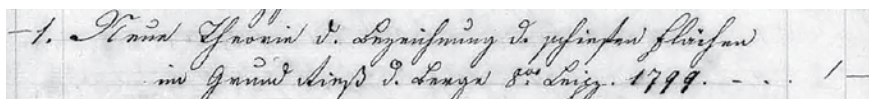 1. Neue Theorie d. Bezeichnung d. schiefen Flächen
im Grund Rieß d. Berge 8vo Leipz. 1799. - - . 1